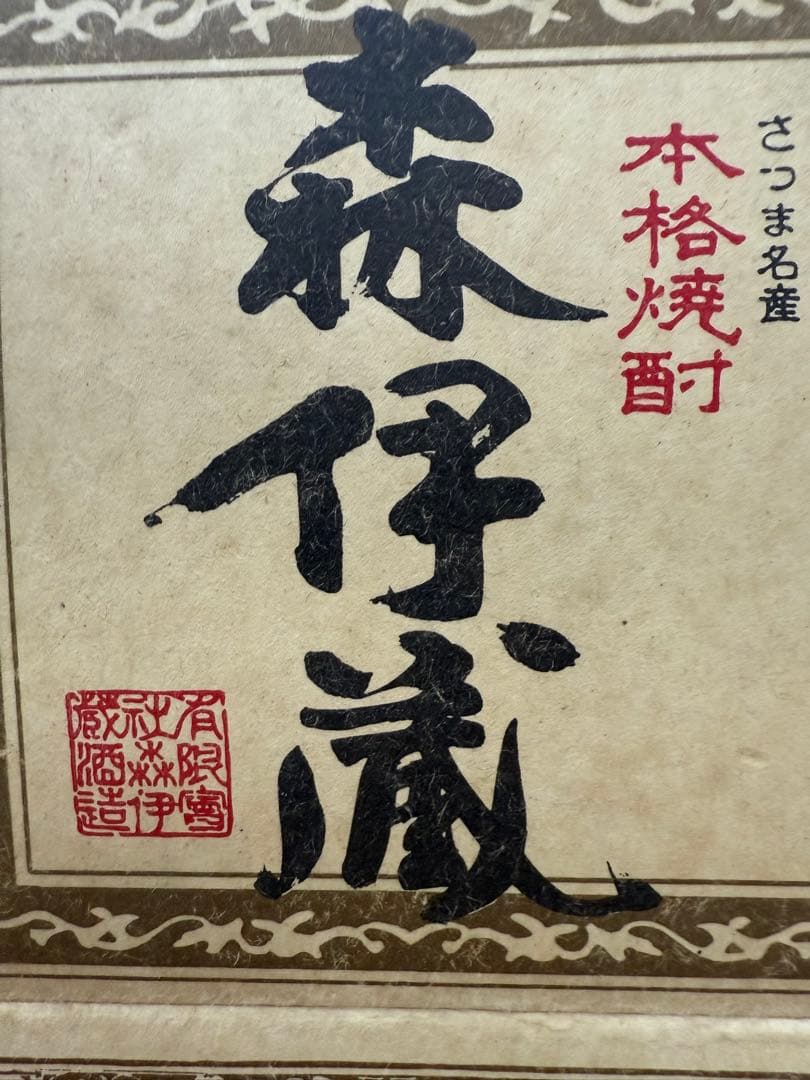 さつま名産
本格焼酎
森伊蔵
有限会
社森伊
蔵酒造